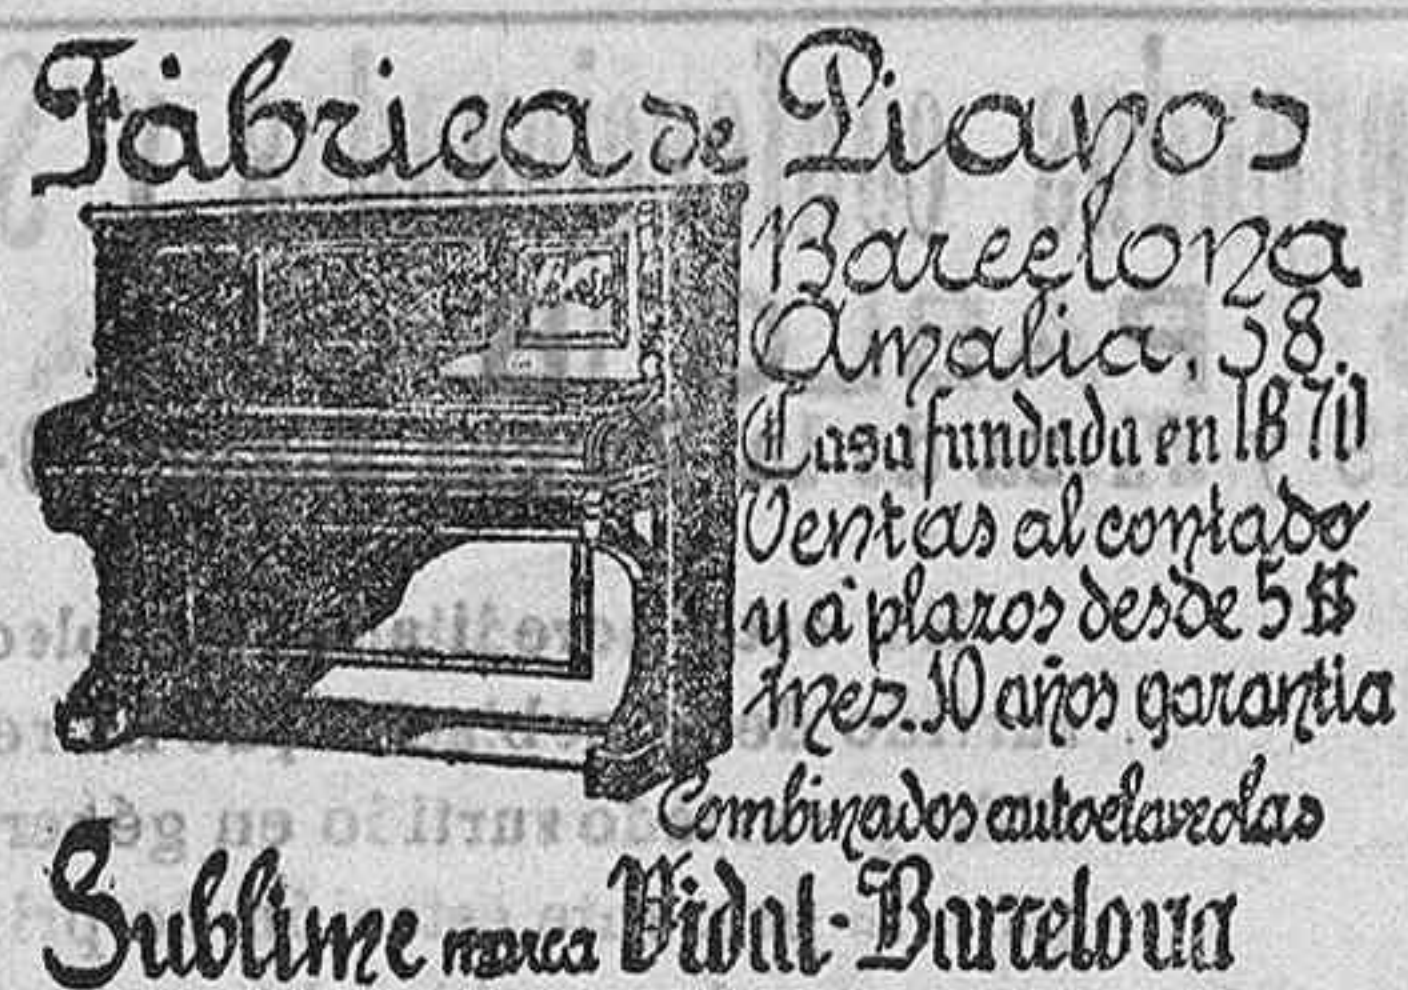 Fábrica de Pianos
Barcelona
Amalia, 38.
Casa fundada en
Ventas al contado
y á plazos desde 5 $
mes. 10 años garantia
Combinados autoclaveolas
Sublime marca Vidal-Barcelona